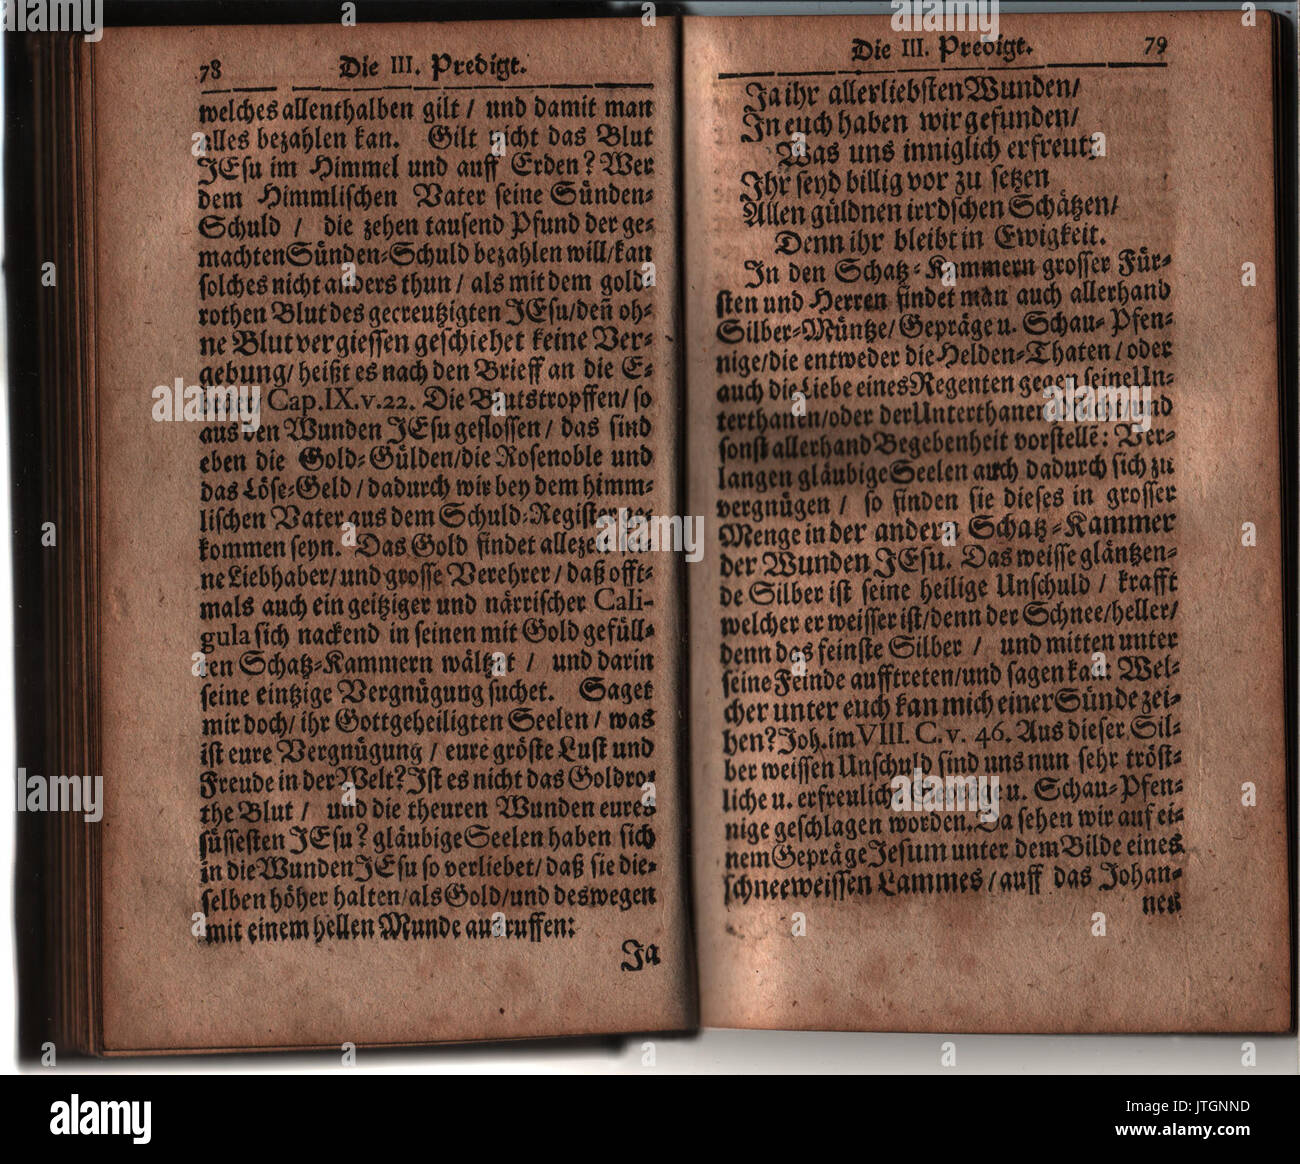 78 Die III. Predigt.
welches allenthalben gilt / und damit man
alles bezahlen kan. Gilt nicht das Blut
JEsu im Himmel und auff Erden? Wer
dem Himmlischen Vater seine Sünden⸗
Schuld / die zehen tausend Pfund der ge⸗
machten Sünden⸗Schuld bezahlen will / kan
solches nicht anders thun / als mit dem gold⸗
rothen Blut des gecreutzigten JEsu / deñ oh⸗
ne Blutvergiessen geschiehet keine Ver⸗
gebung / heißt es nach den Brieff an die E⸗
Cap. IX. v. 22. Die Blutstropffen / so
aus den Wunden JEsu geflossen / das sind
eben die Gold⸗Gülden / die Rosenoble und
das Löse⸗Geld / dadurch wir bey dem himm⸗
lischen Vater aus dem Schuld⸗Register ge⸗
kommen seyn. Das Gold findet allezeit sei⸗
ne Liebhaber / und grosse Verehrer / daß offt⸗
mals auch ein geitziger und närrischer Cali-
gula sich nackend in seinen mit Gold gefüll⸗
ten Schatz⸗Kammern wältzet / und darin
seine eintzige Vergnügung suchet. Saget
mir doch / ihr Gottgeheiligten Seelen / was
ist eure Vergnügung / eure gröste Lust und
Freude in der Welt? Ist es nicht das Goldro⸗
the Blut / und die theuren Wunden eures
süssesten JEsu? gläubige Seelen haben sich
in die Wunden JEsu so verliebet / daß sie die⸗
selben höher halten / als Gold / und deswegen
mit einem hellen Munde ausruffen:
Ja
Die III. Predigt. 79
Ja ihr allerliebsten Wunden /
In euch haben wir gefunden /
Was uns inniglich erfreut:
Ihr seyd billig vor zu setzen
Allen güldnen irrdschen Schätzen /
Denn ihr bleibt in Ewigkeit.
In den Schatz⸗Kammern grosser Für⸗
sten und Herren findet man auch allerhand
Silber⸗Müntze / Gepräge u. Schau⸗Pfen⸗
nige / die entweder die Helden⸗Thaten / oder
auch die Liebe eines Regenten gegen seine Un⸗
terthanen / oder der Unterthanen Pflicht / und
sonst allerhand Begebenheit vorstellẽ: Ver⸗
langen gläubige Seelen auch dadurch sich zu
vergnügen / so finden sie dieses in grosser
Menge in der andern Schatz⸗Kammer
der Wunden JEsu. Das weisse gläntzen⸗
de Silber ist seine heilige Unschuld / krafft
welcher er weisser ist / denn der Schnee / heller /
denn das feinste Silber / und mitten unter
seine Feinde aufftreten / und sagen kan: Wel⸗
cher unter euch kan mich einer Sünde zei⸗
hen? Joh. im VIII. C. v. 46. Aus dieser Sil⸗
ber weissen Unschuld sind uns nun sehr tröst⸗
liche u. erfreuliche Gepräge u. Schau⸗Pfen⸗
nige geschlagen worden. Da sehen wir auf ei⸗
nem Gepräge Jesum unter dem Bilde eines
schneeweissen Lammes / auff das Johan⸗
nes
alamy
Image ID: JTGNND
www.alamy.com